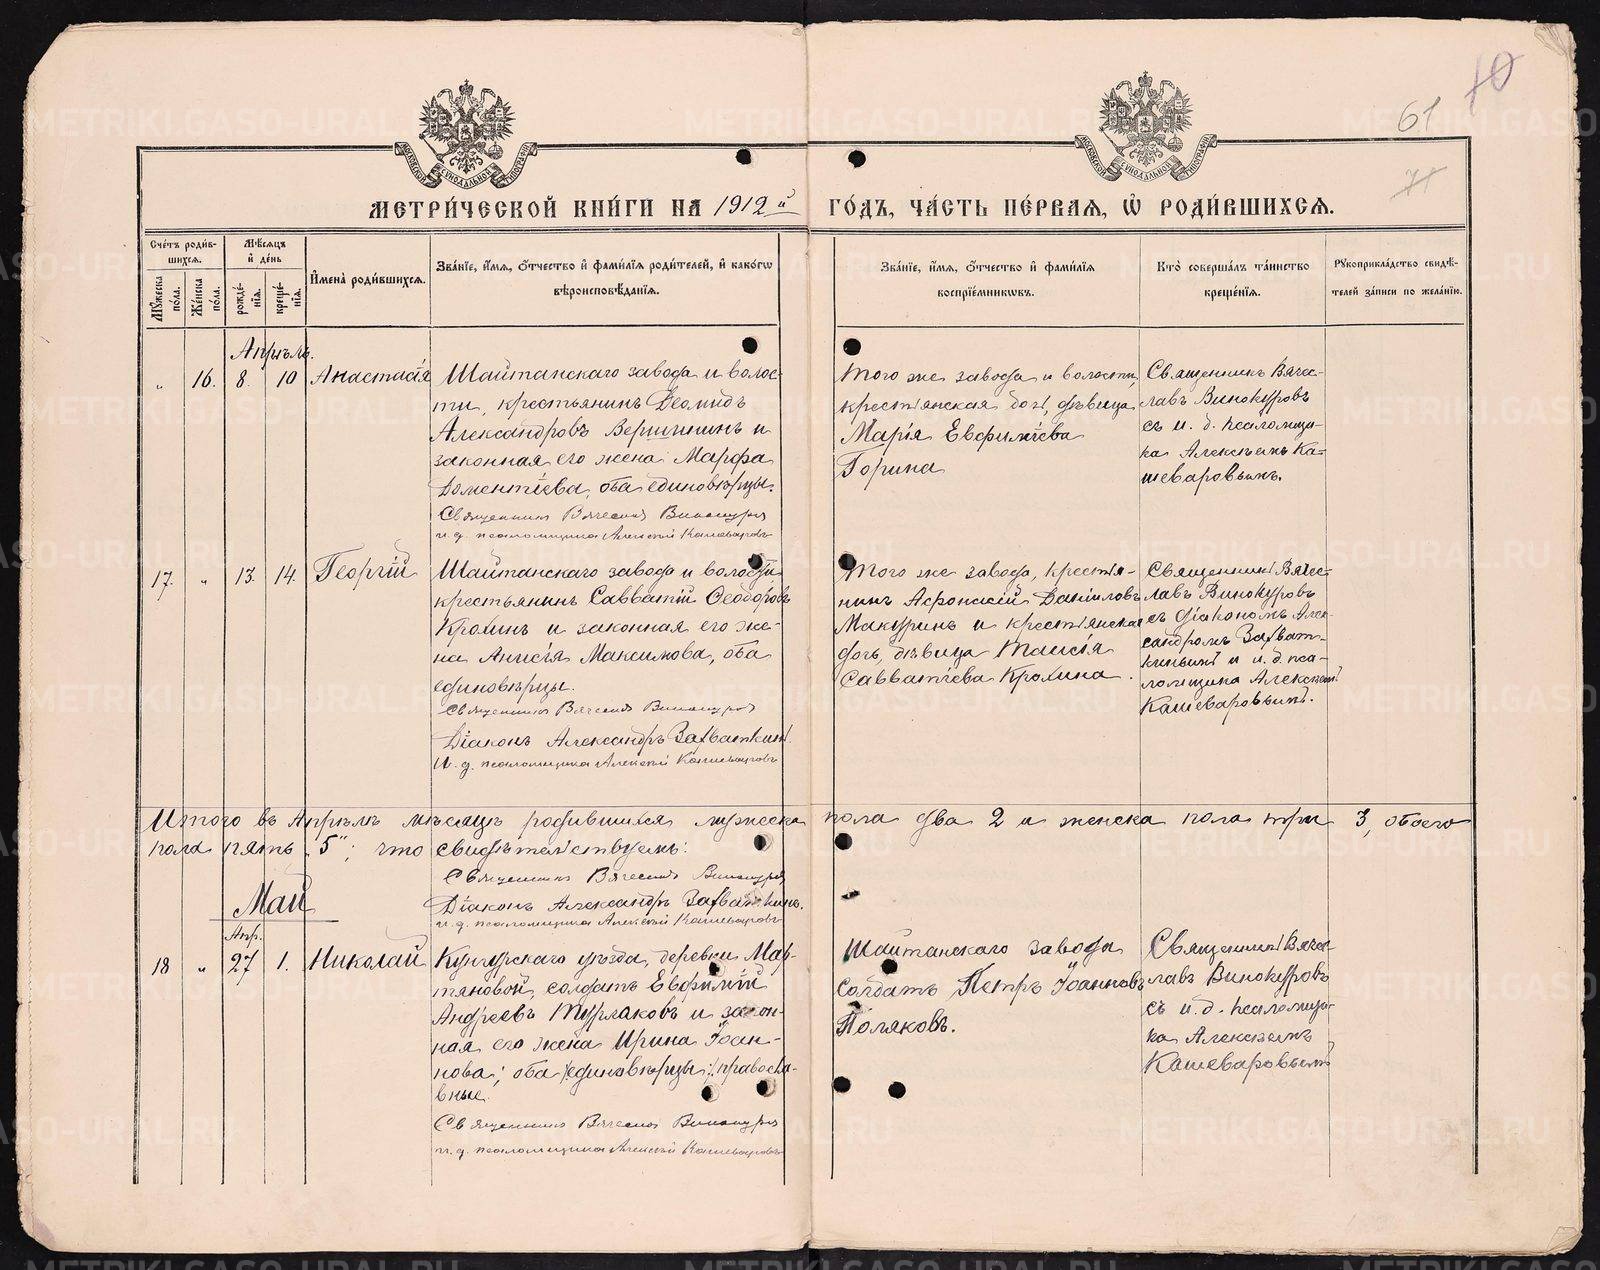 70
61
71
МОСКОВСКОЙ СѴНОДАЛЬНОЙ ТИПОГРАФІИ
МОСКОВСКОЙ СѴНОДАЛЬНОЙ ТИПОГРАФІИ
МЕТРИ́ЧЕСКОЙ КНИ́ГИ НА 1912й ГО́ДЪ, ЧА́СТЬ ПЕ́РВАЯ, Ѡ РОДИ́ВШИХСЯ.
Сче́тъ роди́вшихся.
Мꙋ́жеска по́ла.
Же́нска по́ла.
Мѣ́сяцъ и҆ де́нь
рожде́нїя.
креще́нїя.
И҆мена̀ роди́вшихся.
Зва́нїе, и҆́мя, ѻ҆́тчество и҆ фами́лїя роди́телей, и҆ како́гѡ вѣроисповѣ́данїя.
Зва́нїе, и҆́мя, ѻ҆́тчество и҆ фами́лїя воспрїе́мникѡвъ.
Кто̀ соверша́лъ та́инство креще́нїя.
Рꙋкоприкла́дство свидѣ́телей за́писи по жела́нїю.
Апрѣль.
„ 16. 8. 10 Анастасія
Шайтанскаго завода и волос-
ти, крестьянинъ Діомидъ
Александровъ Вершининъ и
законная его жена Марфа
Дометіева, оба единовѣрцы.
Священникъ Вячеславъ Винокуровъ
и. д. псаломщика Алексѣй Кашеваровъ
Того же завода и волости,
крестьянская дочь, дѣвица
Марія Евфиміева
Горина
Священникъ Вяче-
славъ Винокуровъ
съ и. д. псаломщи-
ка Алексѣемъ Ка-
шеваровымъ.
17. „ 13. 14. Георгій
Шайтанскаго завода и волости
крестьянинъ Савватій Ѳеодоровъ
Крохинъ и законная его же-
на Анисія Максимова, оба
единовѣрцы.
Священникъ Вячеславъ Винокуровъ
Діаконъ Александръ Захваткинъ.
И. д. псаломщика Алексѣй Кашеваровъ
Того же завода, крестья-
нинъ Аѳонскій Даніиловъ
Макуринъ и крестьянская
дочь, дѣвица Таисія
Савватіева Крохина.
Священникъ Вячес-
лавъ Винокуровъ
съ діакономъ Алек-
сандромъ Захват-
кинымъ и и. д. пса-
ломщика Алексѣемъ
Кашеваровымъ.
Итого въ Апрѣлѣ мѣсяцѣ родившихся мужеска пола два 2 и женска пола три 3, обоего
пола пять „5“; что свидѣтельствуемъ:
Священникъ Вячеславъ Винокуровъ
Діаконъ Александръ Захваткинъ.
и. д. псаломщика Алексѣй Кашеваровъ
Май
Апр.
18 „ 27 1. Николай
Кунгурскаго уѣзда, деревни Мар-
тяновой, солдатъ Евфимій
Андреевъ Турлаковъ и закон-
ная его жена Ирина Іоан-
нова; оба /:единовѣрцы:/ правосла-
вные.
Священникъ Вячеславъ Винокуровъ
и. д. псаломщика Алексѣй Кашеваровъ
Шайтанскаго завода
солдатъ Петръ Іоанновъ
Поляковъ.
Священникъ Вячес-
лавъ Винокуровъ
съ и. д. псаломщи-
ка Алексѣемъ
Кашеваровымъ
METRIKI.GASO-URAL.RU